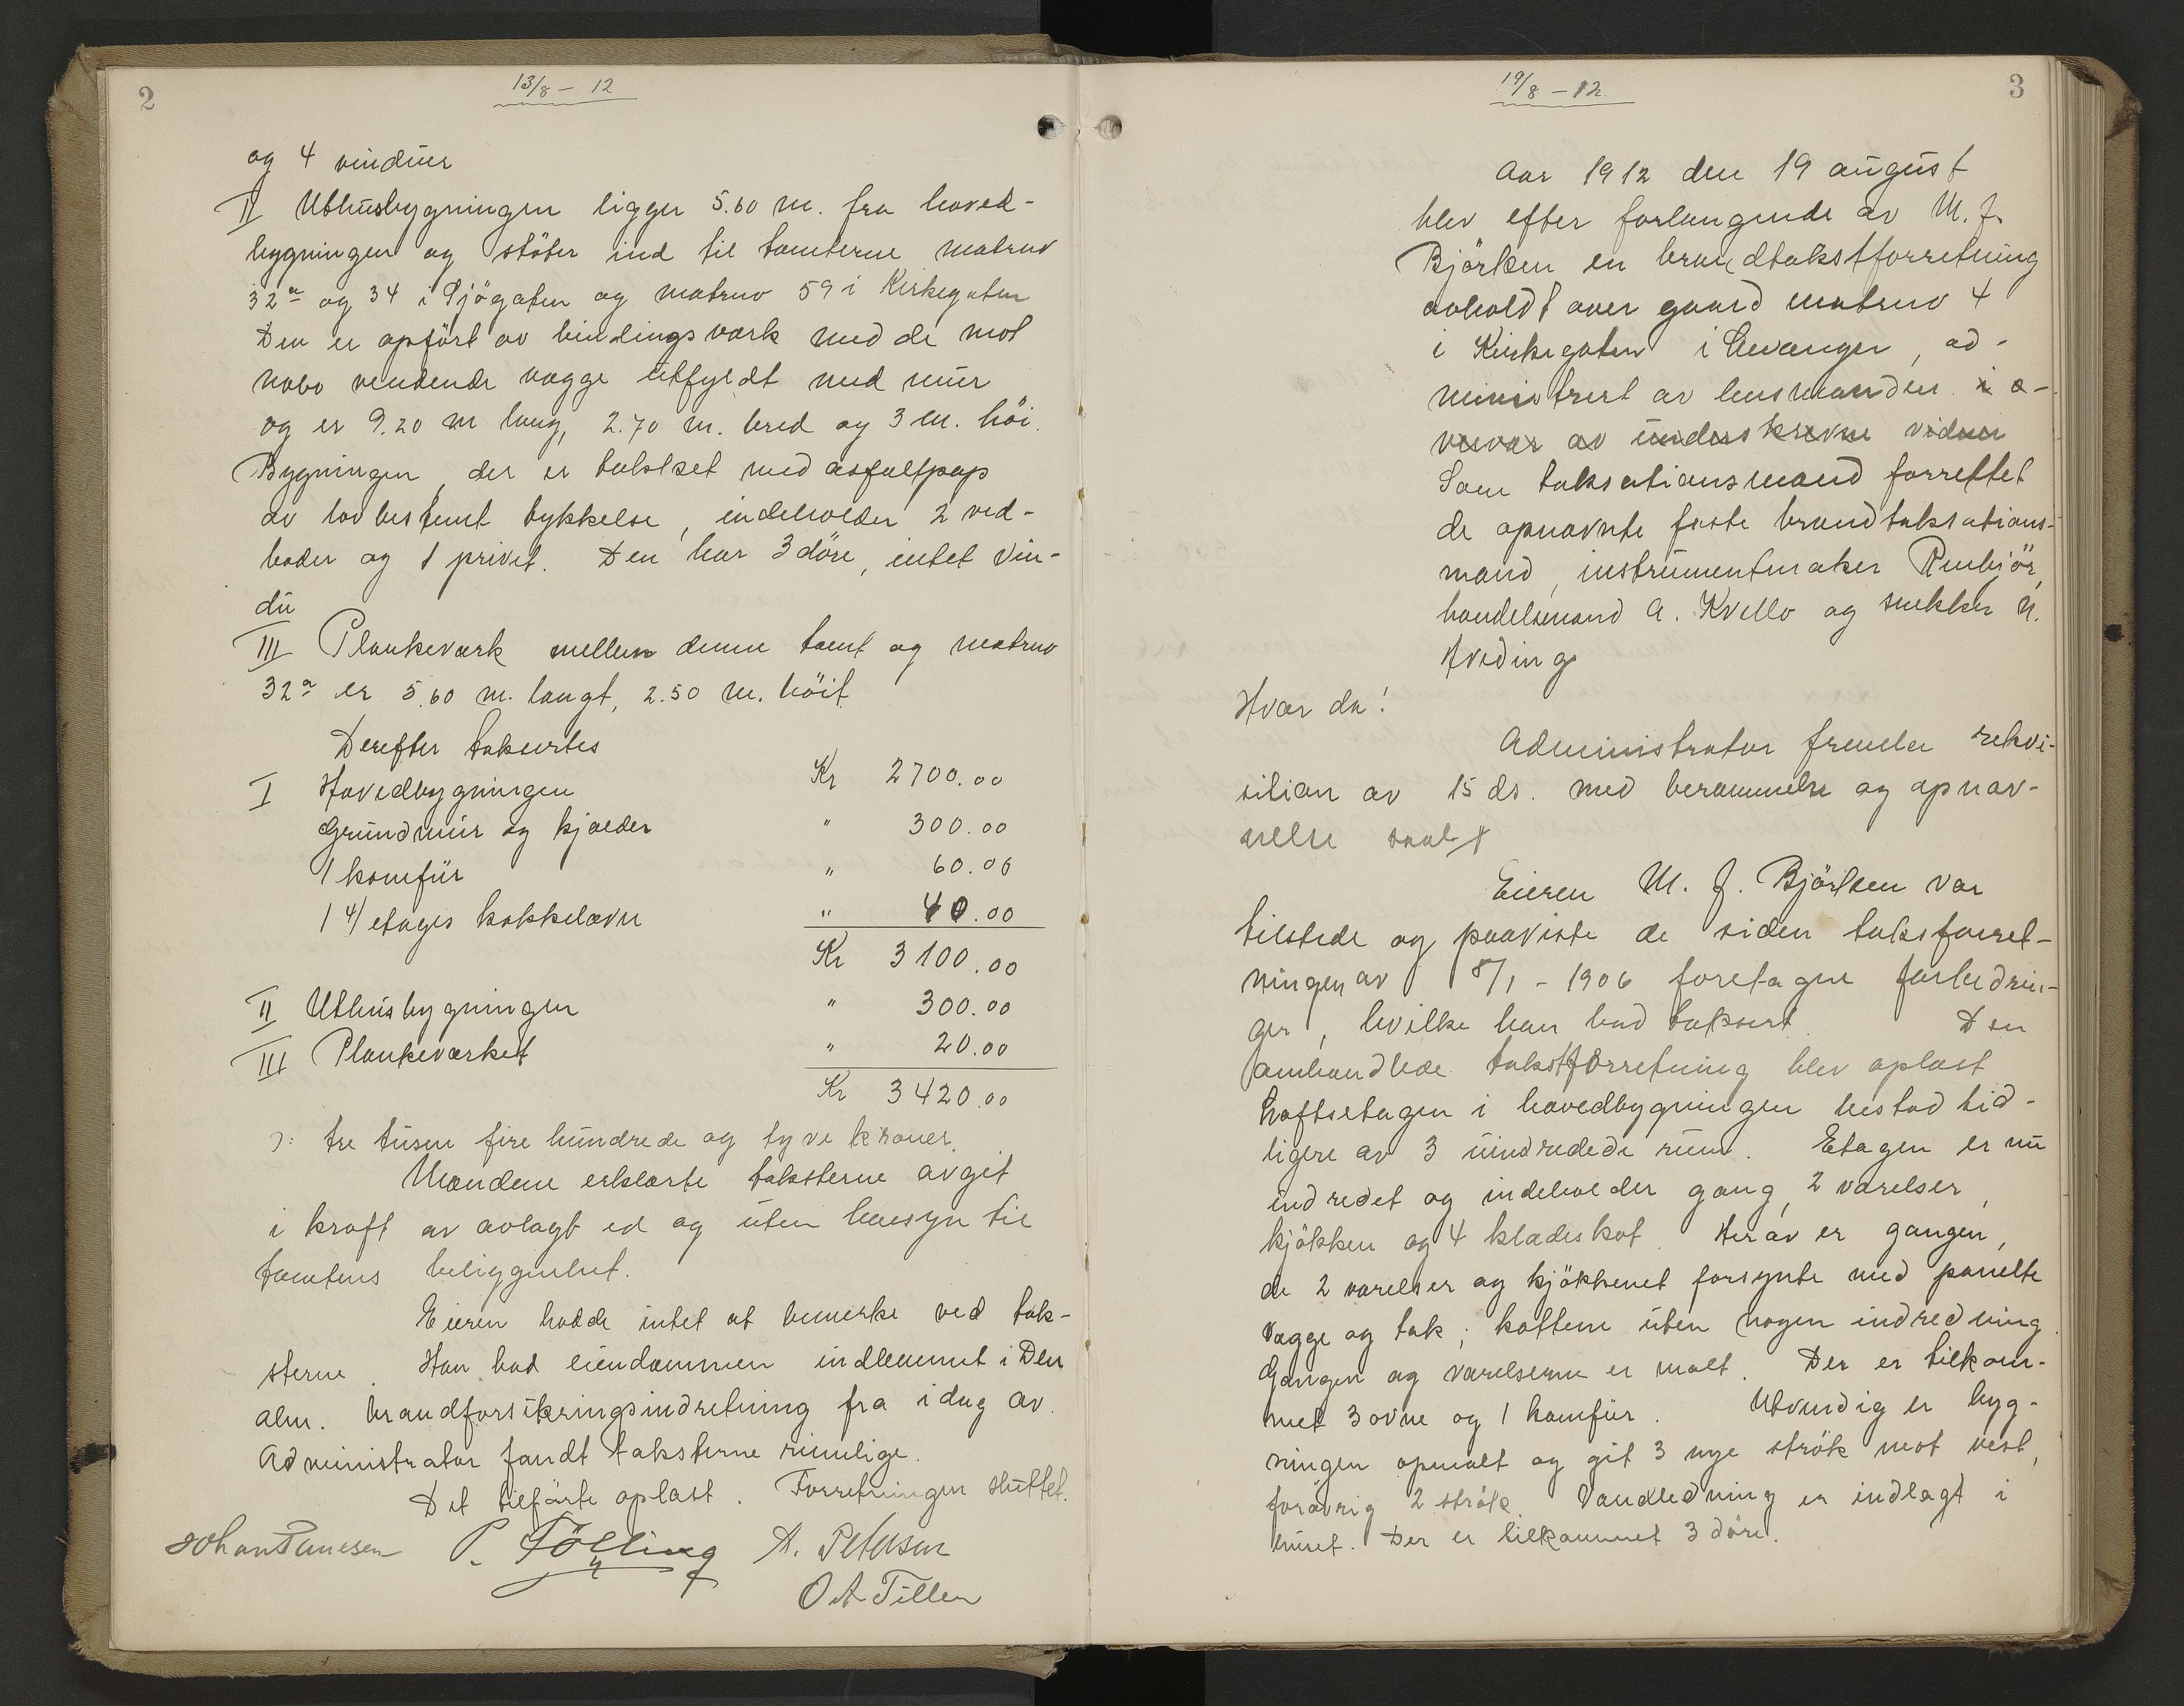 2
13/8 - 12
og 4 vinduer
II Uthusbygningen ligger 5.60 m. fra hoved-
bygningen og stöter ind til tomterne matrno
32a og 34 i Sjögaten og matrno 59 i Kirkegaten
Den er opfört av bindingsverk med de mot
nabo vendende vægge utfyldt med mur
og er 9.20 m lang, 2.70 m. bred og 3 m. höi.
Bygningen, der er taktækket med asfaltpap
av lovbestemt tykkelse, indeholder 2 ved-
boder og 1 privet. Den har 3 döre, intet vin-
du
III Plankeverk mellem denne tomt og matrno
32a er 5.60 m. langt, 2.50 m. höit
Derefter takseertes
I Hovedbygningen Kr 2700.00
Grundmur og kjælder " 300.00
1 komfür " 60.00
1 4/etages kakkelovn " 40.00
Kr 3100.00
II Uthusbygningen " 300.00
III Plankeværket " 20.00
Kr 3420.00
ɔ: tre tusen fire hundrede og tyve kroner.
Mændene erklærte taksterne avgit
i kraft av avlagt ed og uten hensyn til
tomtens beliggenhet.
Eieren hadde intet at bemerke ved tak-
sterne. Han bad eiendommen indlemmet i Den
alm. brandforsikringsindretning fra idag av.
Administrator fandt taksterne rimelige.
Det tilförte oplæst. Forretningen sluttet.
P. Tölling A. Petersen
O A Tillen
3
19/8 - 12.
Aar 1912 den 19 august
blev efter forlangende av M. J.
Björken en brandtakstforretning
avholdt over gaard matrno 4
i Kirkegaten i Levanger, ad-
ministrert av lensmanden i o-
vervær av underskrevne vidner
Som taksationsmænd forrettet
de opnævnte faste brandtaksations-
mænd, instrumentmaker Renbjör,
handelsmand A. Kvello og snekker N.
Hveding
Hvor da!
Administrator fremla rekvi-
sition av 15 ds. med berammelse og opnæv-
nelse saal.
Eieren M. J. Björken var
tilstede og paaviste de siden taksforret-
ningen av 8/1 - 1906 foretagne forbedrin-
ger, hvilke han bad taksert. Den
omhandlede takstforretning blev oplæst
Loftsetagen i hovedbygningen bestod tid-
ligere av 3 uindredede rum. Etagen er nu
indredet og indeholder gang, 2 værelser,
kjökken og 4 klædeskot. Herav er gangen,
de 2 værelser og kjökkenet forsynte med panelte
vægge og tak; kottene uten nogen indredning.
Gangen og værelserne er malt. Der er tilkom-
met 3 ovne og 1 komfür. Utvendig er byg-
ningen opmalt og git 3 nye strök mot vest,
forövrig 2 strök. Vandledning er indlagt i
huset. Der er tilkommet 3 döre.